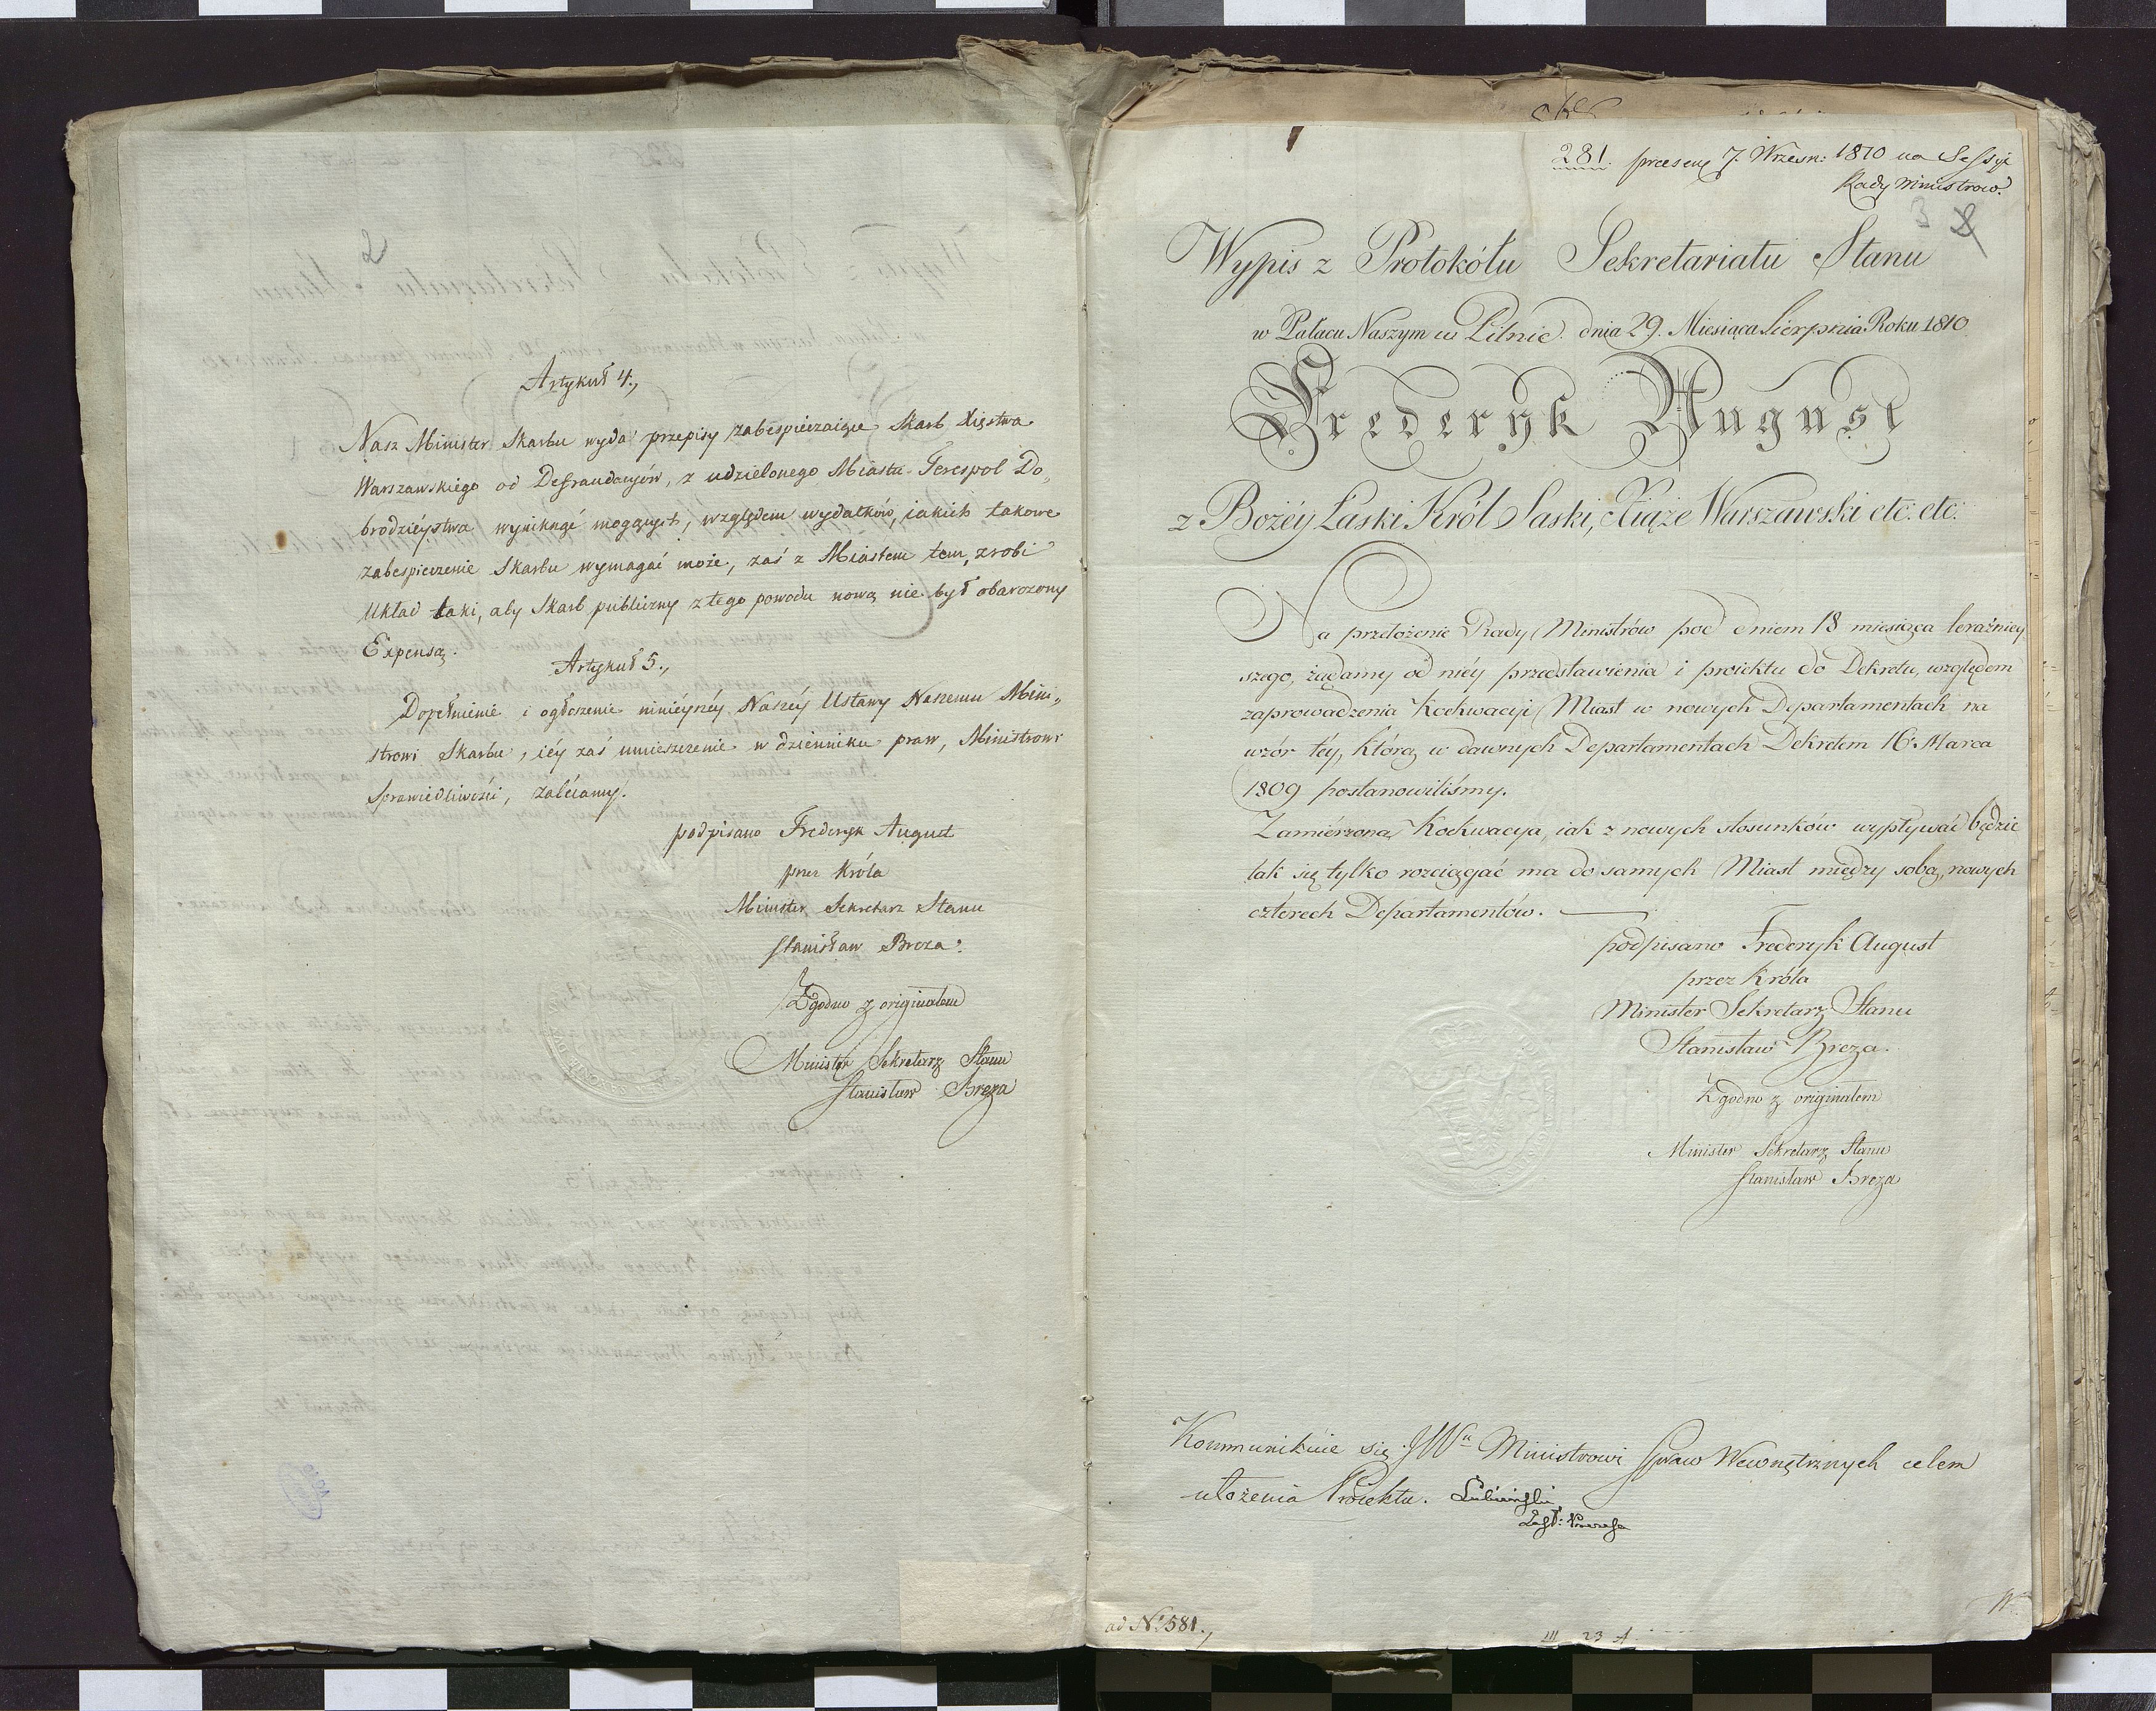 Artykuł 4.,
Nasz Minister Skarbu wyda przepisy zabespieczaiące Skarb Xięstwa
Warszawskiego od Defraudacyów, z udzielonego Miastu Terespol Do„
brodzieystwa wyniknąć mogących, względem wydatków, iakich takowe
zabespieczenie Skarbu wymagać może, zaś z Miastem tem, zrobi
Układ taki, aby Skarb publiczny z tego powodu nową nie był obarczony
Expensą.
Artykuł 5.,
Dopełnienie i ogłoszenie ninieyszéy Naszéy Ustawy Naszemu Mini„
strowi Skarbu, iéy zaś umieszczenie w dzienniku praw, Ministrowi
Sprawiedliwości, zalécamy.
podpisano Frederyk August
przez Króla
Minister Sekretarz Stanu
Stanisław Breza.
Zgodno z originałem
Minister Sekretarz Stanu
Stanisław Breza
281. praesent: 7. Wrzesn: 1810 na Sessyi
Rady Ministrow.
3 2
Wypis z Protokółu Sekretariatu Stanu
w Pałacu Naszym w Pilnic. dnia 29. Miesiąca Sierpnia Roku 1810
Frederyk August
z Bożéy Łaski Król Saski, Xiąże Warszawski etc. etc.
Na przełożenie Rady Ministrów pod dniem 18 miesiąca teraźniey
szego, żądamy od niéy przedstawienia i proiektu do Dekretu, względem
zaprowadzenia Koekwacyi Miast w nowych Departamentach na
wzór téy, którą w dawnych Departamentach Dekretem 16 Marca
1809 postanowiliśmy.
Zamiérzona Koekwacya, iak z nowych stosunków wypływać będzie
tak się tylko rozciągać ma do samych Miast między sobą, nowych
czterech Departamentów.
podpisano Frederyk August
przez Króla
Minister Sekretarz Stanu
Stanisław Breza.
Zgodno z originałem
Minister Sekretarz Stanu
Stanisław Breza
Kommunikuie się JWu Ministrowi Spraw Wewnętrznych celem
ułożenia Proiektu. Łubieński
Zast: Prezesa
ad No 581.,
III 23 A